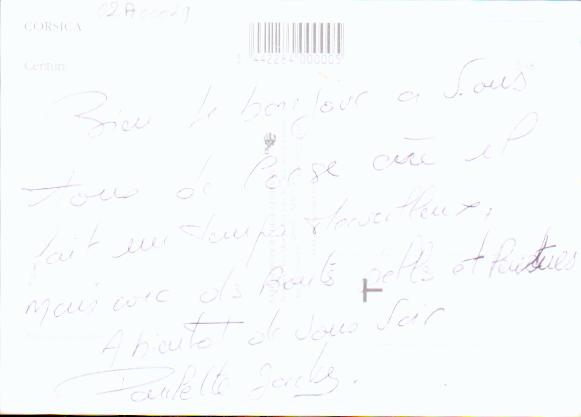 02A00029
CORSICA
Centuri
3 442284 000005
Bien le bonjour a vous
tous de Corse où il
fait un temps Merveilleux,
mais avec des Routes
A bientot de vous voir
Paulette